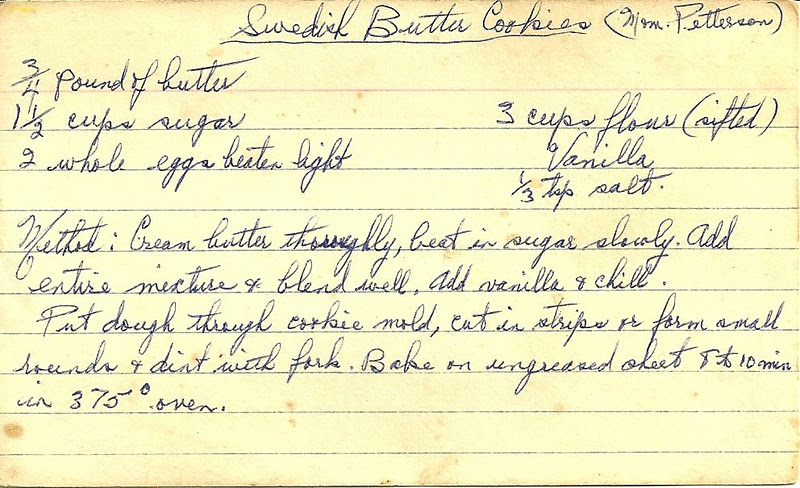 Swedish Butter Cookies (Mom. Petterson)
3/4 pound of butter
1 1/2 cups sugar
2 whole eggs beaten light
3 cups flour (sifted)
Vanilla
1/3 tsp salt.
Method: Cream butter thoroughly, beat in sugar slowly. Add
entire mixture & blend well. Add vanilla & chill.
Put dough through cookie mold, cut in strips or form small
rounds & dint with fork. Bake on ungreased sheet 8 to 10 min
in 375° oven.